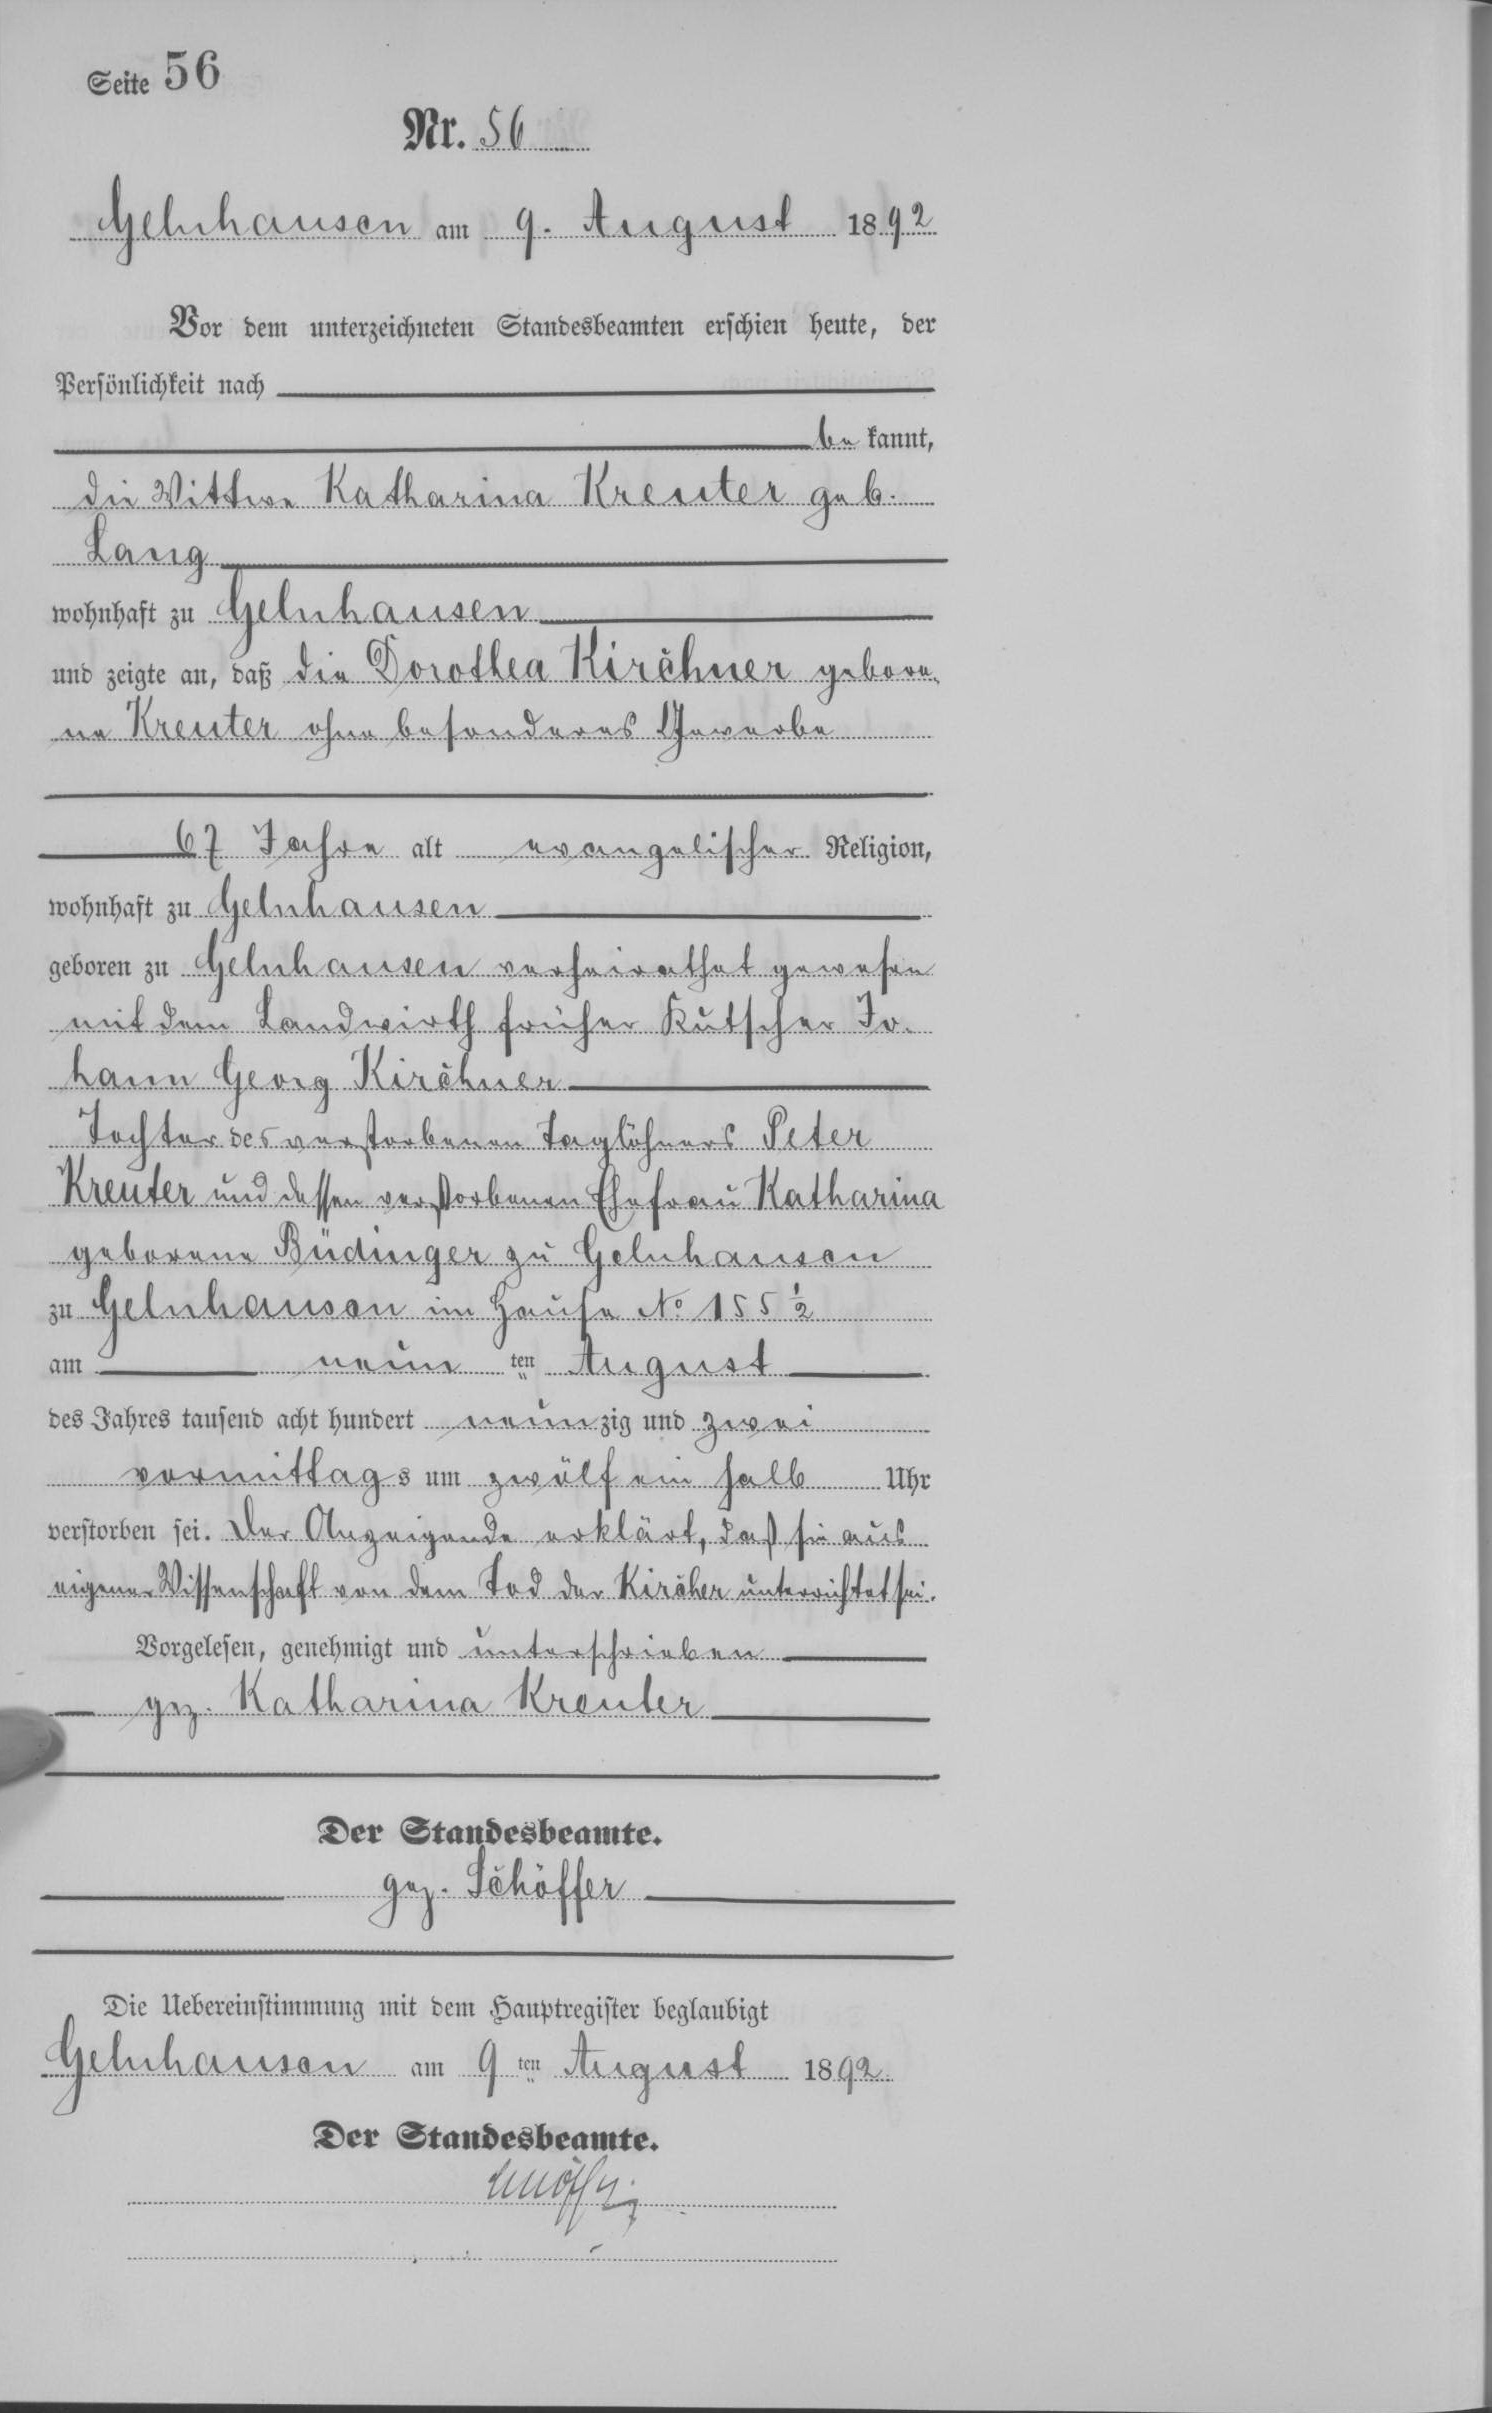 Seite 56
Nr. 56
Gelnhausen am 9. August 1892
Vor dem unterzeichneten Standesbeamten erschien heute, der
Persönlichkeit nach
be kannt,
die Wittwe Katharina Kreuter geb.
Lang
wohnhaft zu Gelnhausen
und zeigte an, daß die Dorothea Kirchner gebore-
ne Kreuter ohne besonderes Gewerbe
67 Jahre alt evangelischer Religion,
wohnhaft zu Gelnhausen
geboren zu Gelnhausen verheirathet gewesen
mit dem Landwirth früher Kutscher Jo-
hann Georg Kirchner
Tochter des verstorbenen Taglöhners Peter
Kreuter und dessen verstorbenen Ehefrau Katharina
geborene Büdinger zu Gelnhausen
zu Gelnhausen im Hause No 155 1/2
am neun ten August
des Jahres tausend acht hundert neunzig und zwei
vormittags um zwölf ein halb Uhr
verstorben sei. Der Anzeigende erklärt, daß sie aus
eigener Wissenschaft von dem Tod der Kircher unterrichtet sei.
Vorgelesen, genehmigt und unterschrieben
gez. Katharina Kreuter
Der Standesbeamte.
gez. Schöffer
Die Uebereinstimmung mit dem Hauptregister beglaubigt
Gelnhausen am 9 ten August 1892
Der Standesbeamte.
Schöffer